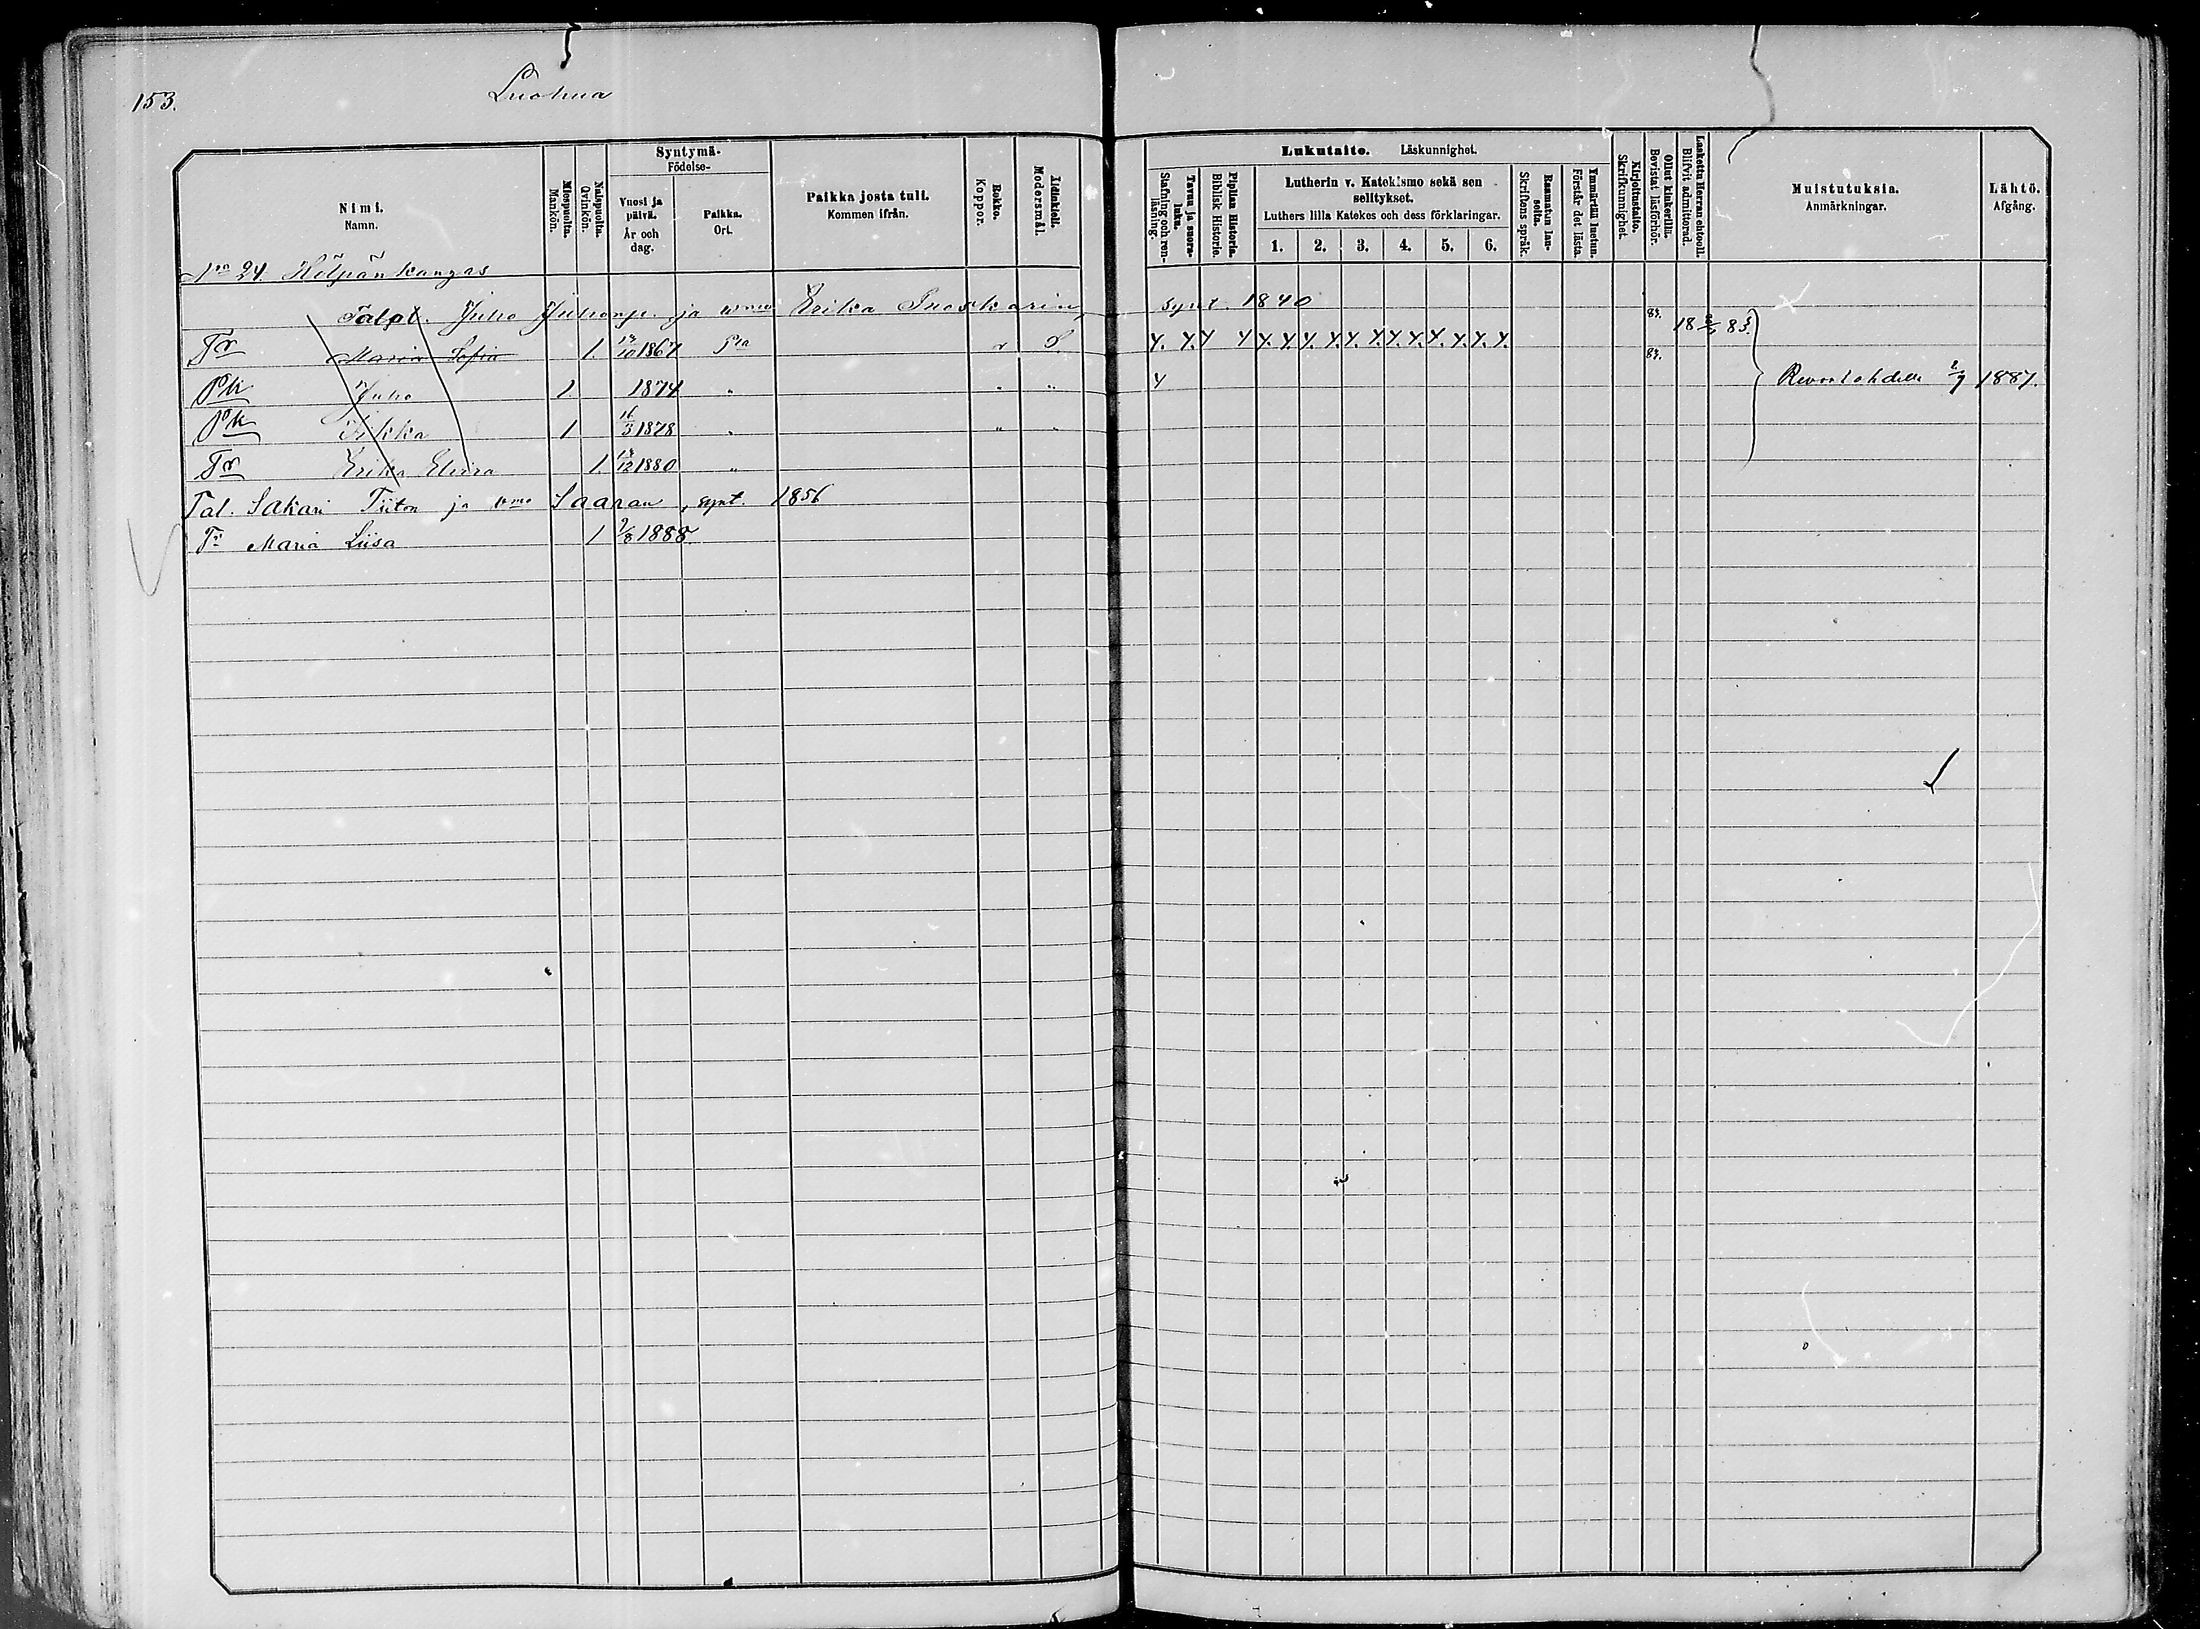 153.
Luohua
Nimi.
Namn.
Miespuolta.
Mankön.
Naispuolta.
Qvinkön.
Syntymä-
Födelse-
Vuosi ja
päivä.
År och
dag.
Paikka.
Ort.
Paikka josta tuli.
Kommen ifrån.
Rokko.
Koppor.
Äidinkieli.
Modersmål.
Lukutaito. Läskunnighet.
Tavuu ja suora-
luku.
Stafning och ren-
läsning.
Piplian Historia.
Biblisk Historie.
Lutherin v. Katekismo sekä sen
selitykset.
Luthers lilla Katekes och dess förklaringar.
1. 2. 3. 4. 5. 6.
Raamatun lau-
seita.
Skriftens språk.
Ymmärtää luetun.
Förstår det lästa.
Kirjoitustaito.
Skrifkunnighet.
Ollut kinkerillä.
Bevistat läsförhör.
Laskettu Herran ehtooll.
Blifvit admitterad.
Muistutuksia.
Anmärkningar.
Lähtö.
Afgång.
N:o 24. Kölpänkangas
Talpl. Juho Juhonp. ja vmo Erika synt. 1840
Tr Maria Sofia 1 13/10 1867 Pla r S. 83. 18 83.
Pk Juho 1 1874 " " " 83. Revonlahdelle 2/7 1887.
Pk Iikka 1 16/3 1878 " " "
Tr Erika Elvira 1. 13/12 1880 "
Tal. Sakari Tiiton ja vmo Saaran, synt. 1856
Tr Maria Liisa 1 9/8 1888.